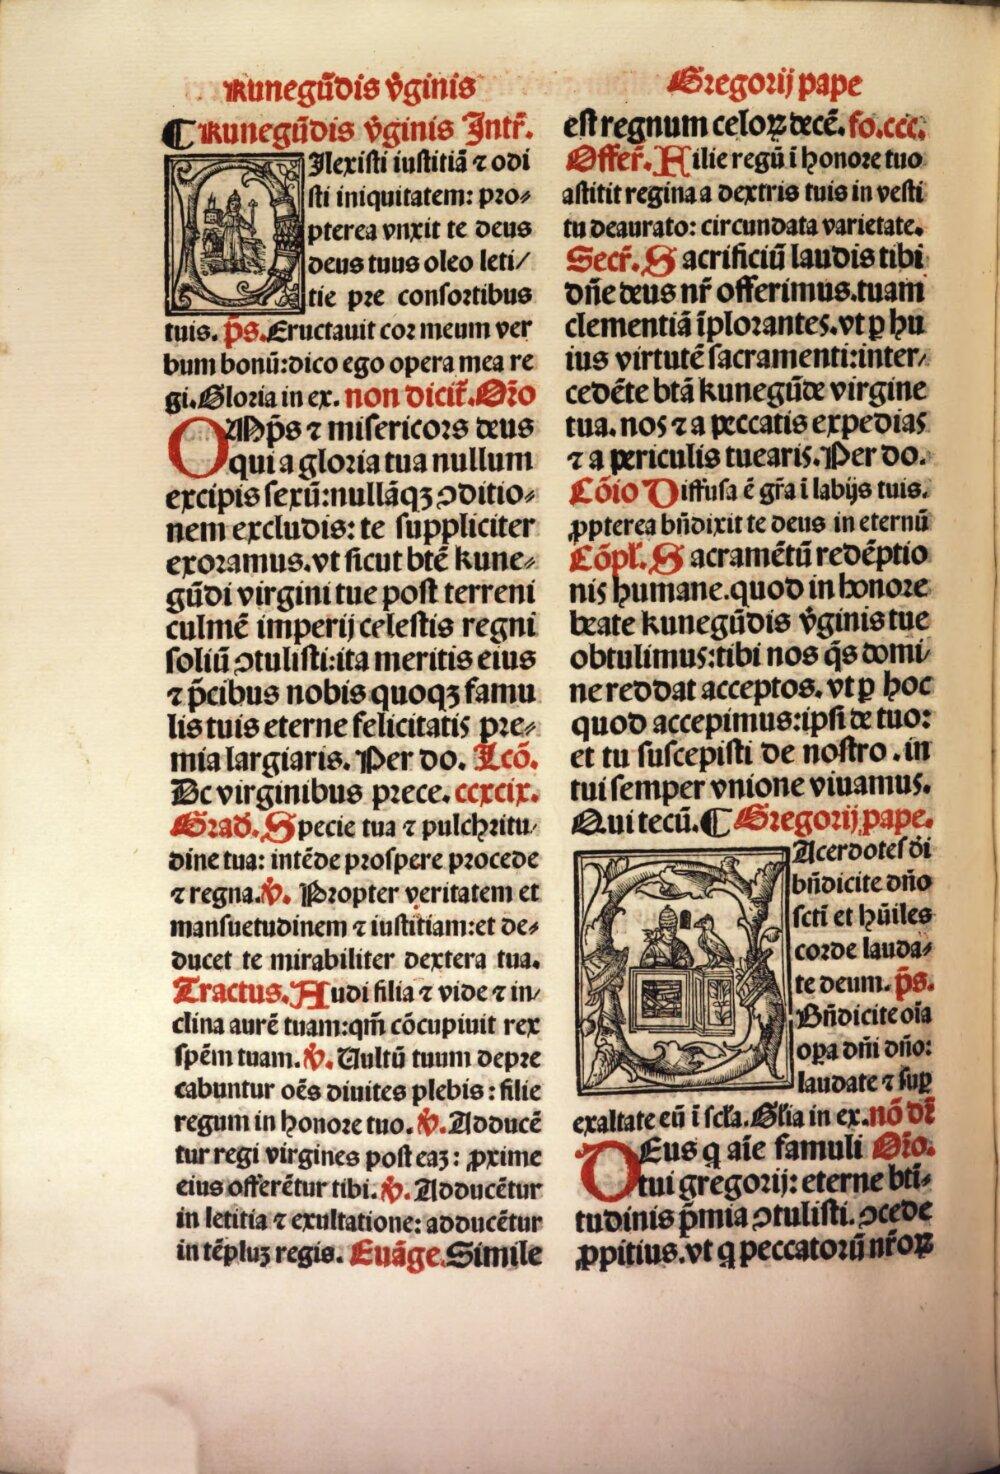 Kunegūdis v̄ginis
Gregorij pape
¶ Kunegūdis v̄ginis Intr̄.
DIlexisti iustitiā ⁊ odi
sti iniquitatem: pro⸗
pterea vnxit te deus
deus tuus oleo leti/
tie pre consortibus
tuis. p̄s. Eructauit cor meum ver
bum bonū: dico ego opera mea re
gi. Gloria in ex. non dicit̄. Or̄o
OMp̄s ⁊ misericors deus
qui a gloria tua nullum
excipis sexū: nullāqꝫ ↄditio⸗
nem excludis: te suppliciter
exoramus. vt sicut btē kune⸗
gūdi virgini tue post terreni
culmē imperij celestis regni
soliū ↄtulisti: ita meritis eius
⁊ p̄cibus nobis quoqꝫ famu
lis tuis eterne felicitatis pre⸗
mia largiaris. Per do. Lcō.
De virginibus prece. ccxcix.
Grad̄. Specie tua ⁊ pulchritu/
dine tua: intēde prospere procede
⁊ regna. v̄. Propter veritatem et
mansuetudinem ⁊ iustitiam: et de⸗
ducet te mirabiliter dextera tua.
Tractus. Audi filia ⁊ vide ⁊ in/
clina aurē tuam: qm̄ cōcupiuit rex
spēm tuam. v̄. Uultū tuum depre
cabuntur oēs diuites plebis: filie
regum in honore tuo. v̄. Adducē
tur regi virgines post eaꝫ: ꝓxime
eius offerētur tibi. v̄. Adducētur
in letitia ⁊ exultatione: adducētur
in tēpluꝫ regis. Euāge. Simile
est regnum celoꝝ decē. fo. ccc.
Offer̄. Filie regū ī honore tuo
astitit regina a dextris tuis in vesti
tu deaurato: circundata varietate.
Secr̄. Sacrificiū laudis tibi
dn̄e deus nr̄ offerimus. tuam
clementiā īplorantes. vt ꝑ hu
ius virtutē sacramenti: inter/
cedēte btā kunegūde virgine
tua. nos ⁊ a peccatis expedias
⁊ a periculis tuearis. Per do.
Cōio Diffusa ē gr̄a ī labijs tuis.
ꝓpterea bn̄dixit te deus in eternū
Cōpl̄. Sacramētū redēptio
nis humane. quod in honore
beate kunegūdis v̄ginis tue
obtulimus: tibi nos q̄s domi/
ne reddat acceptos. vt ꝑ hoc
quod accepimus: ipsi de tuo:
et tu suscepisti de nostro. in
tui semper vnione viuamus.
Qui tecū. ¶ Gregorij pape.
SAcerdotes d̄i
bn̄dicite dn̄o
sctī et hūiles
corde lauda⸗
te deum. p̄s.
Bn̄dicite oīa
oꝑa dn̄i dn̄o:
laudate ⁊ suꝑ
exaltate eū ī scl̄a. Gl̄ia in ex. nō dr̄
DEus q aīe famuli Or̄o.
tui gregorij: eterne btī⸗
tudinis p̄mia ↄtulisti. ↄcede
ꝓpitius. vt q peccatorū nr̄oꝝ